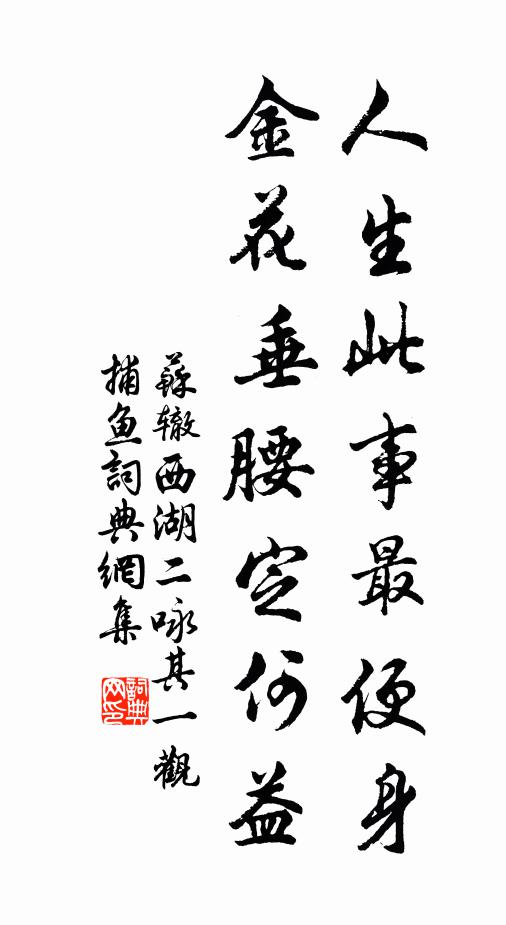 人生此事最便身
金花垂腰定何益
蘇辙西湖二咏其一觀
捕魚詞典網集
詞典
网印